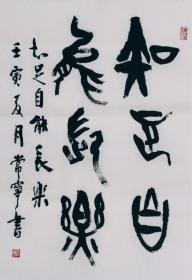 知足自
能長樂
知足自能長樂
壬寅夏月常寧書